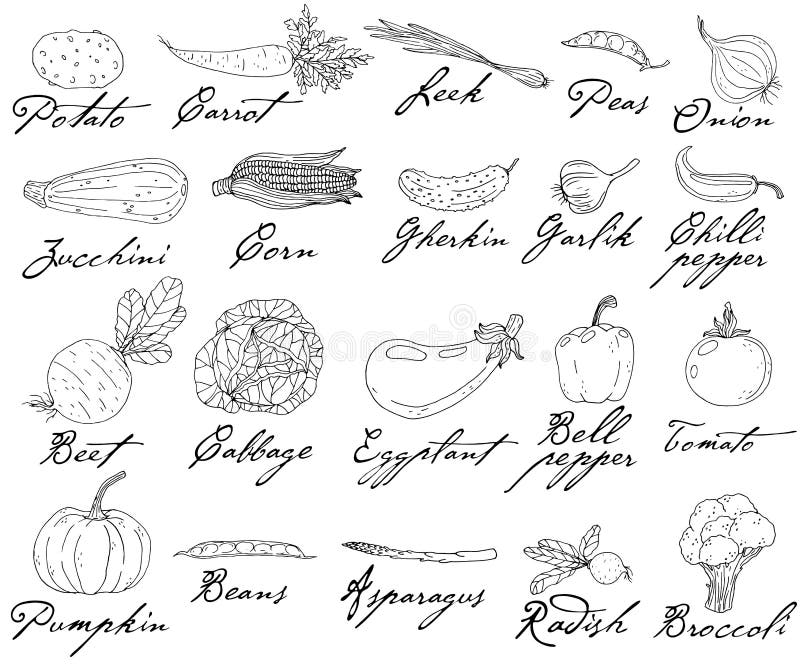 Potato
Carrot
Leek
Peas
Onion
Zucchini
Corn
Gherkin
Garlik
Chilli
pepper
Beet
Cabbage
Eggplant
Bell
pepper
Tomato
Pumpkin
Beans
Asparagus
Radish
Broccoli
dreamstime